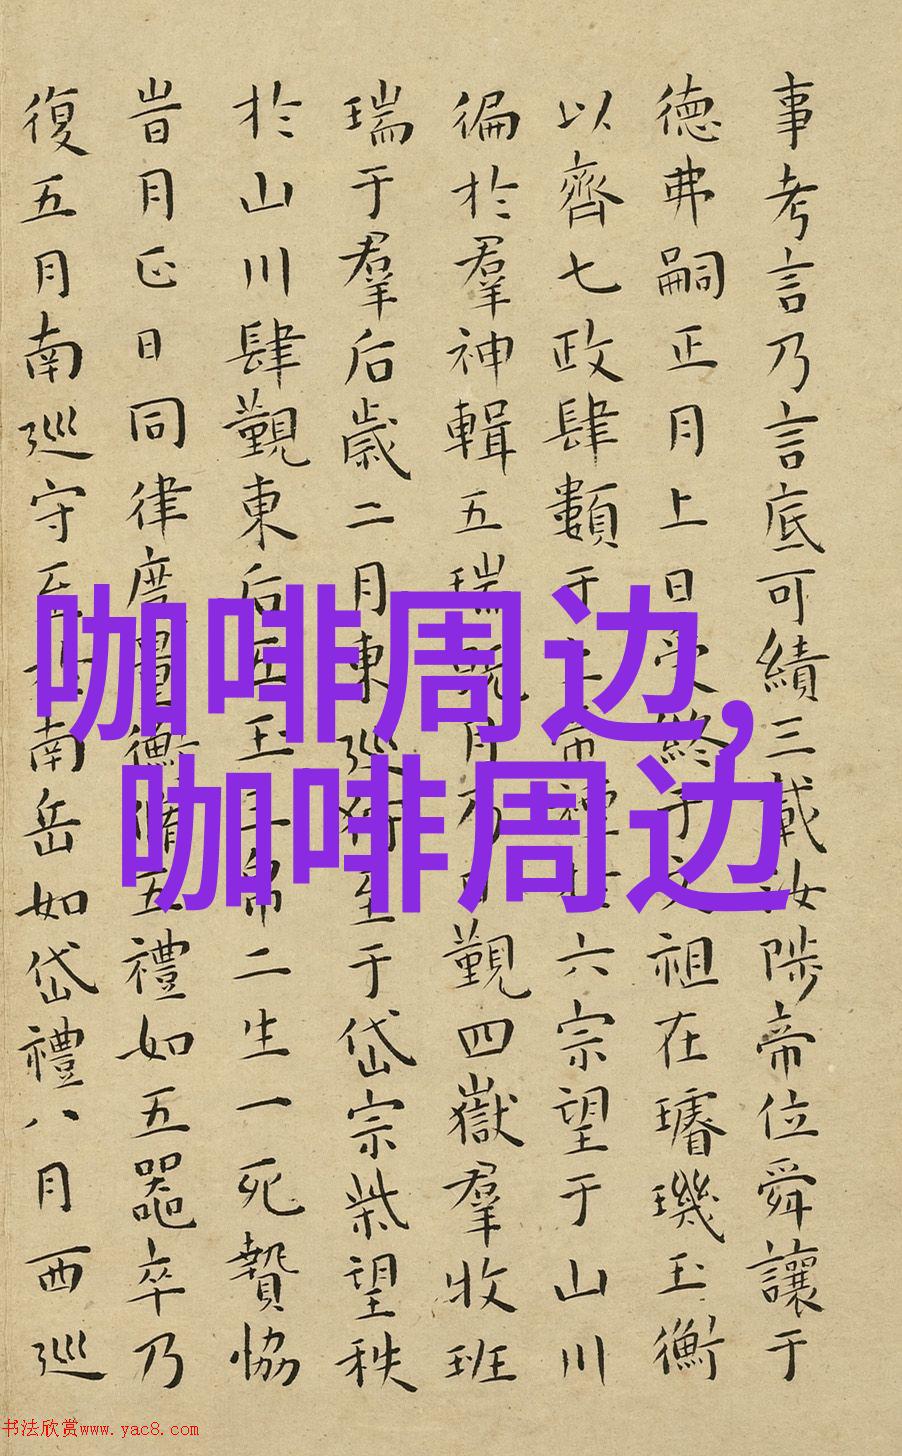 事考言乃言底可績三載汝陟帝位舜讓于
德弗嗣正月上日受終于文祖在璿璣玉衡
以齊七政肆類于上帝禋於六宗望于山川
徧於羣神輯五瑞既月乃日覲四嶽羣牧班
瑞于羣后歲二月東巡狩至于岱宗柴望秩
於山川肆覲東后五玉三帛二生一死贄協
旹月正日同律度量衡脩五禮如五器卒乃
復五月南巡守至於南岳如岱禮八月西巡
咖啡周边,
咖啡周边
书法欣赏www.yac8.com